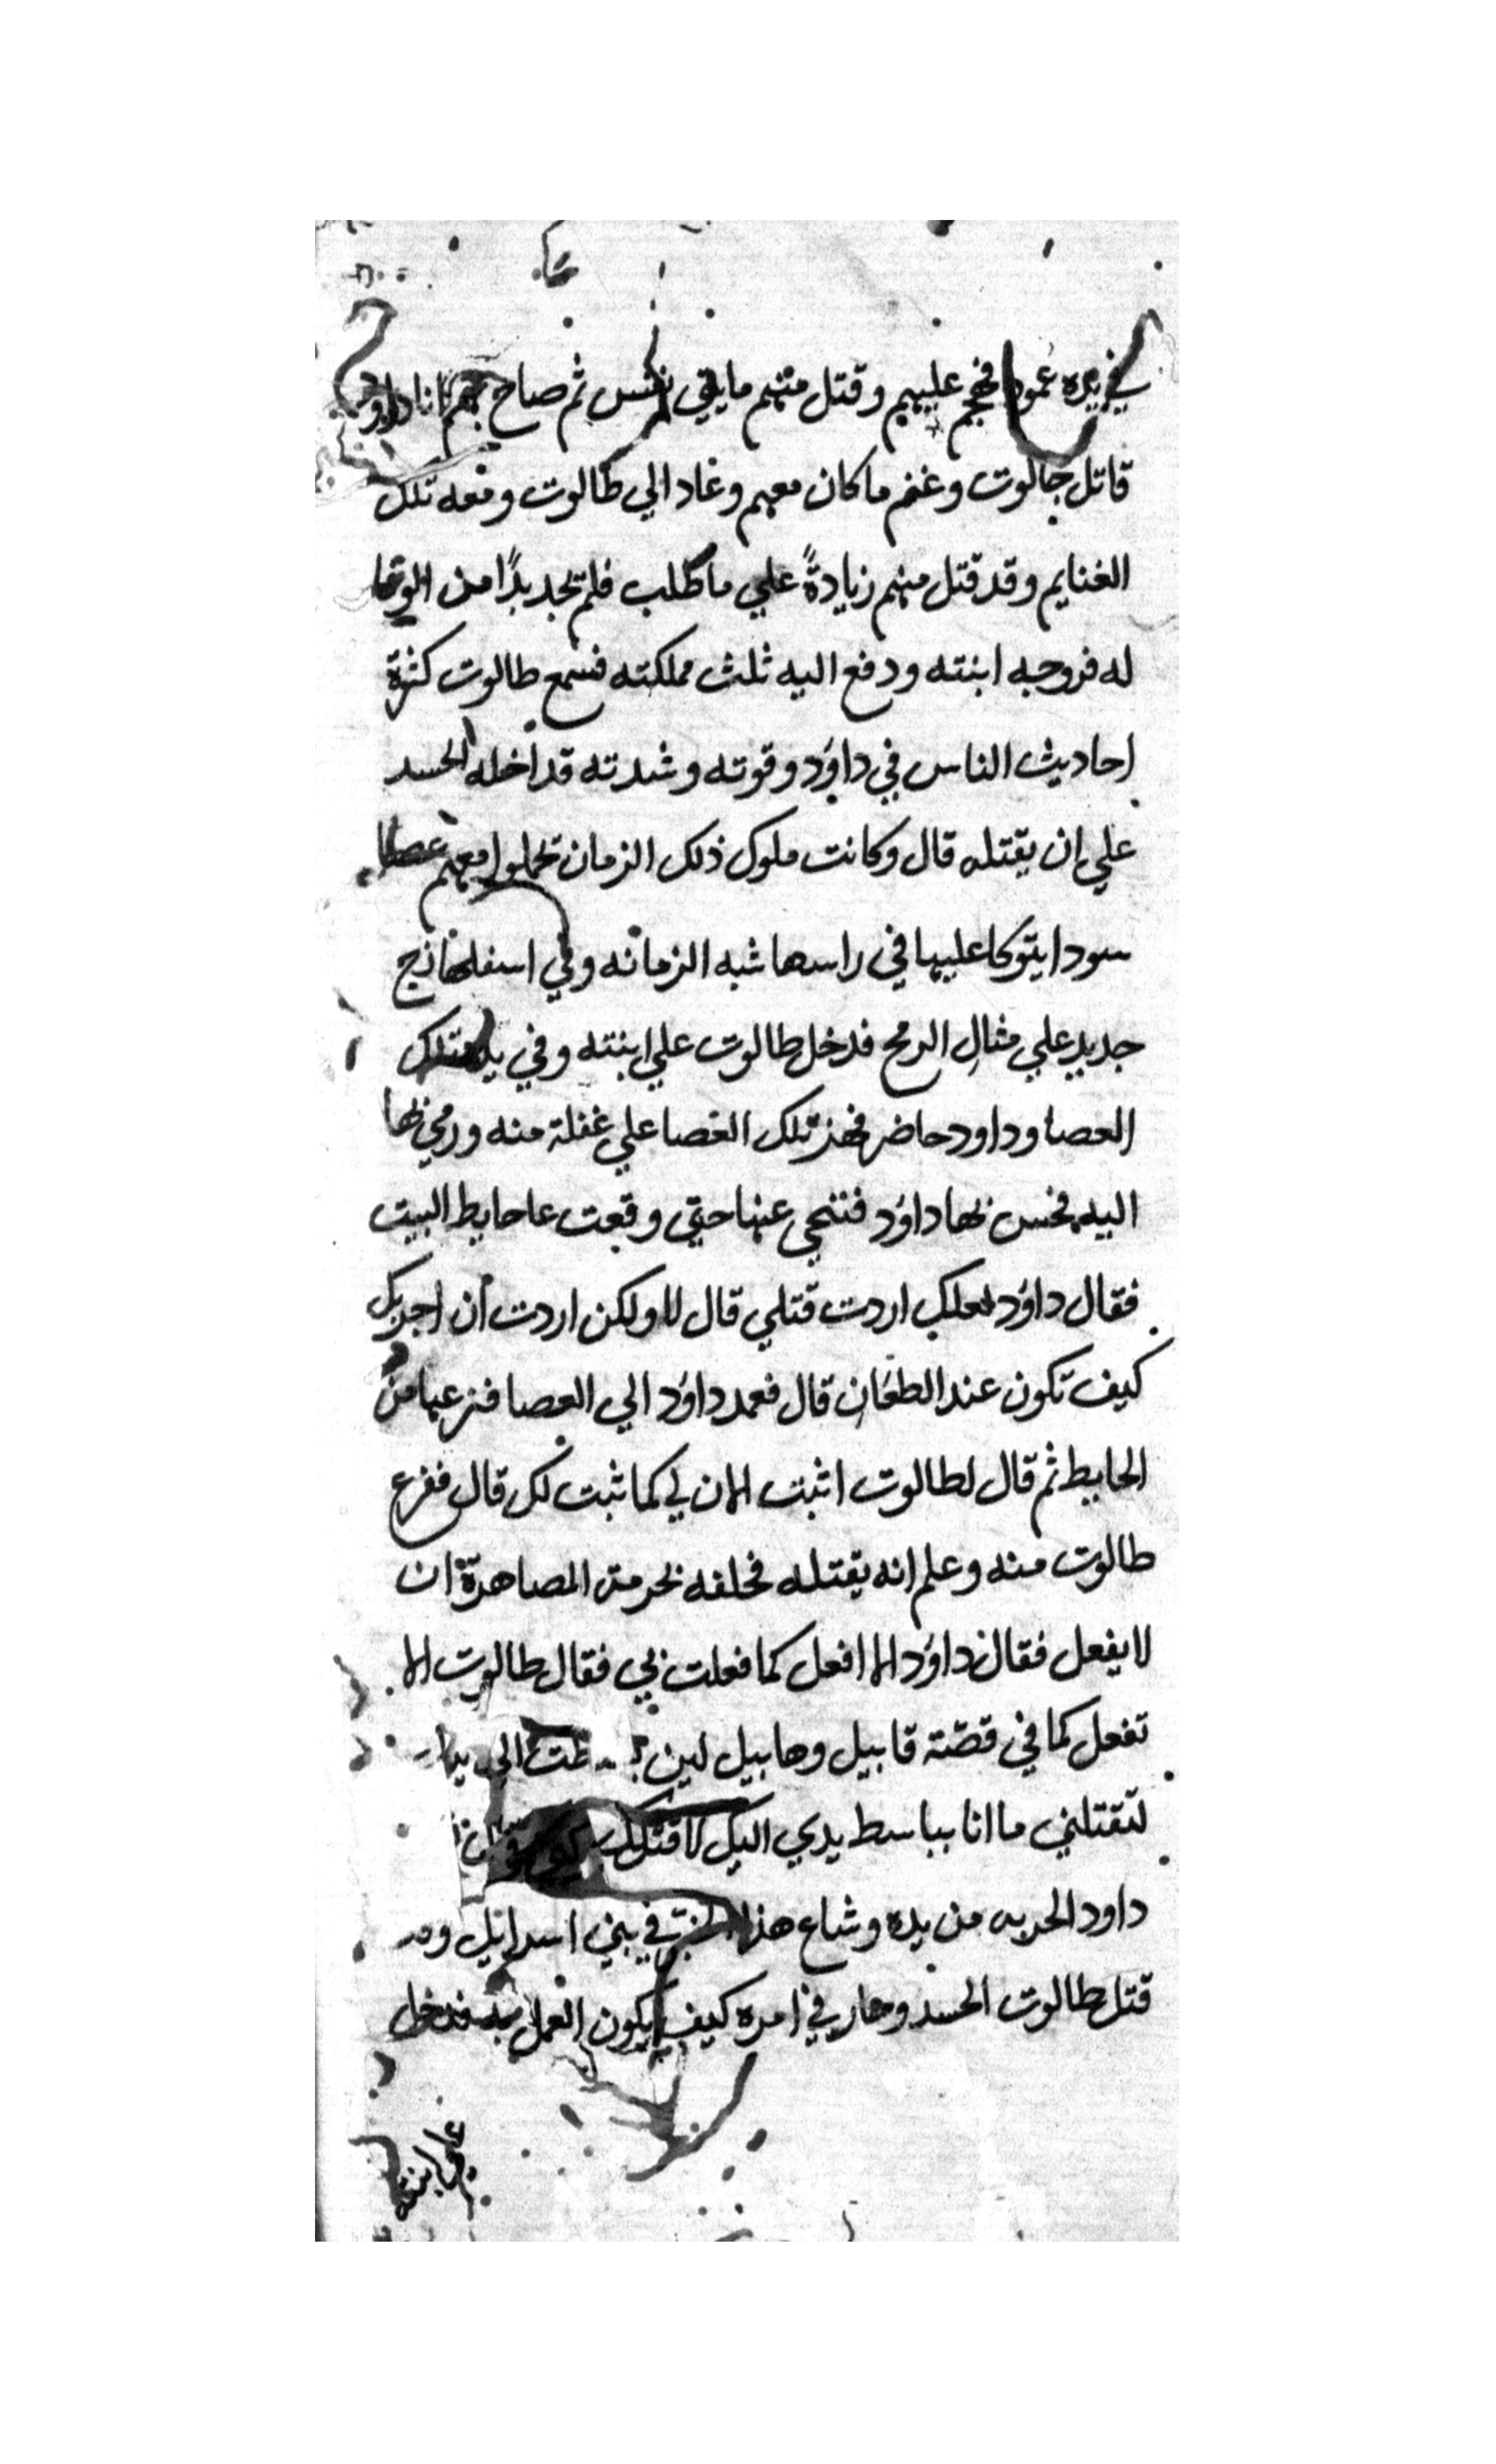 في يده عمود فهجم عليهم وقتل منهم مايتي نفس ثم صاح بهم انا داود
قاتل جالوت وغنم ما كان معهم وعاد الي طالوت ومعه تلك
الغنايم وقد قتل منهم زيادةً علي ما طلب فلم تجد بدًا من الوفا
له فزوجه ابنته ودفع اليه ثلث مملكته فسمع طالوت كثرة
احاديث الناس في داوُد وقوته وشدته قداخله الحسد
علي ان يقتله قال وكانت ملوك ذلك الزمان تحملوا معهم عصا
سودا يتوكا عليها في راسها شبه الرمانه وفي اسفلها زج
جديد علي مثال الرمح فدخل طالوت علي ابنته وفي يده تلك
العصا وداود حاضر فهز تلك العصا علي غفلة منه ورمي بها
اليه فحس بها داوُد فتنحي عنها حتي وقعت عا حايط البيت
فقال داوُد لعلك اردت قتلي قال لا ولكن اردت أن اجربك
كيف تكون عند الطعان قال فعمد داوُد الي العصا فنزعها من
الحايط ثم قال لطالوت اثبت الان لي كما ثبت لك قال ففزع
طالوت منه وعلم انه يقتله فحلفه بحرمة المصاهرة ان
لا يفعل فقال داوُد الا افعل كما فعلت بي فقال طالوت الا
تفعل كما في قصّة قابيل وهابيل لين بسطت الي يدك
لتقتلني ما انا بباسط يدي اليك لاقتلك
داود الحربه من يده وشاع هذا الخبر في بني اسرائيل
قتل طالوت الحسد وحار في امره كيف يكون العمل به فدخل
علي ابنته